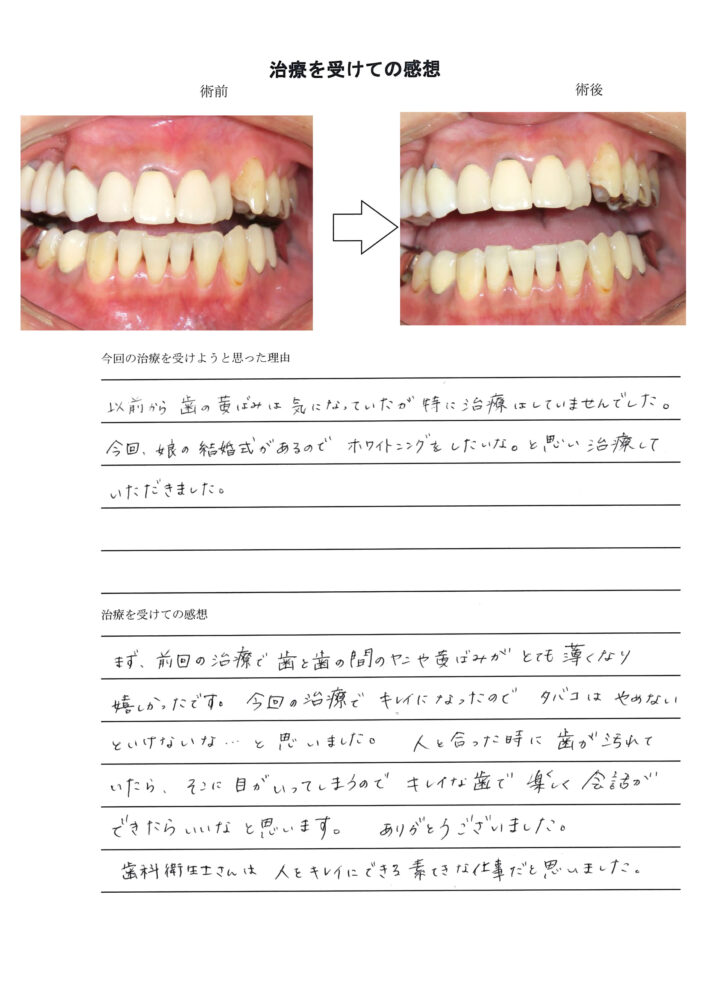 治療を受けての感想
術前
術後
今回の治療を受けようと思った理由
以前から 歯の黄ばみは 気になっていたが 特に治療はしていませんでした。
今回、娘の結婚式があるので ホワイトニングをしたいな。と思い 治療して
いただきました。
治療を受けての感想
まず、前回の治療で 歯と歯の間のヤニや黄ばみが とても薄くなり
嬉しかったです。 今回の治療で キレイになったので タバコは やめない
といけないな…と思いました。 人と合った時に 歯が汚れて
いたら、そこに目がいってしまうので キレイな歯で 楽しく会話が
できたらいいなと思います。 ありがとうございました。
歯科衛生士さんは 人をキレイにできる 素てきな仕事だと思いました。